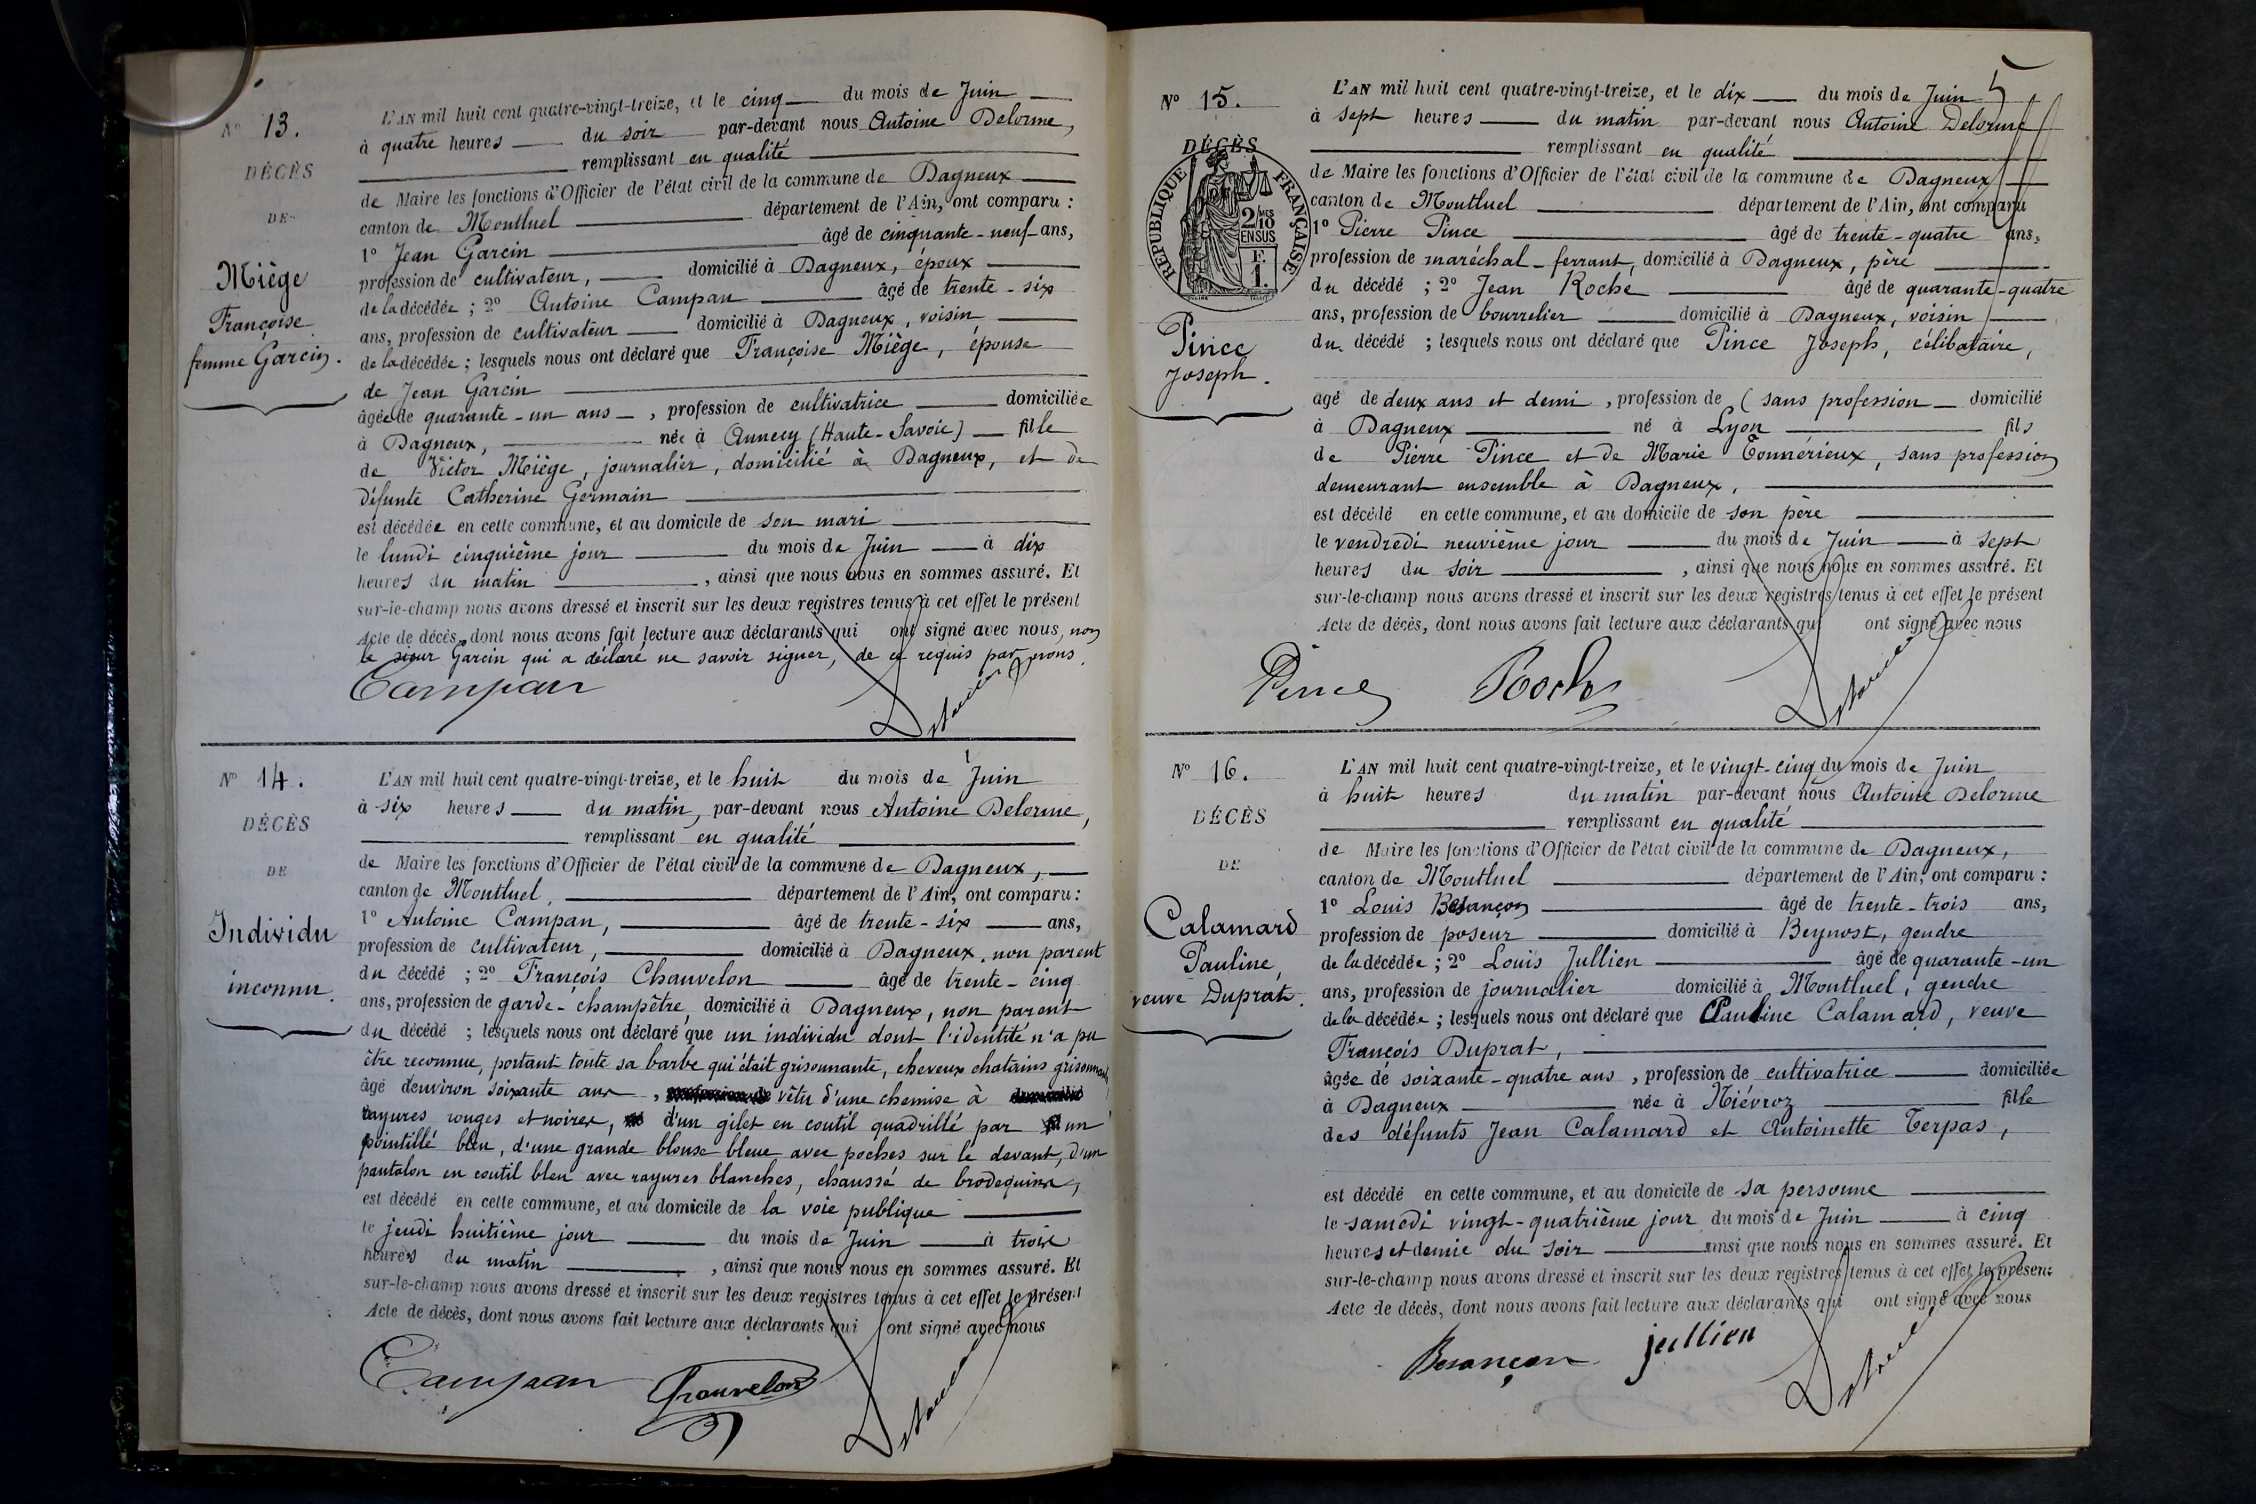 N° 13.
DÉCÈS
DE
Miège
Françoise
femme Garcin.
L'AN mil huit cent quatre-vingt-treize, et le cinq du mois de Juin
à quatre heures du soir par-devant nous Antoine Delorme,
remplissant en qualité
de Maire les fonctions d'Officier de l'état civil de la commune de Dagneux
canton de Montluel département de l'Ain, ont comparu :
1° Jean Garcin âgé de cinquante-neuf ans,
profession de cultivateur, domicilié à Dagneux, époux
de la décédée ; 2° Antoine Campan âgé de trente-six
ans, profession de cultivateur domicilié à Dagneux, voisin
de la décédée ; lesquels nous ont déclaré que Françoise Miège, épouse
de Jean Garcin
âgée de quarante-un ans, profession de cultivatrice domiciliée
à Dagneux, née à Annecy (Haute-Savoie) fille
de Victor Miège, journalier, domicilié à Dagneux, et de
défunte Catherine Germain
est décédée en cette commune, et au domicile de son mari
le lundi cinquième jour du mois de Juin à dix
heures du matin, ainsi que nous nous en sommes assuré. Et
sur-le-champ nous avons dressé et inscrit sur les deux registres tenus à cet effet le présent
Acte de décès, dont nous avons fait lecture aux déclarants qui ont signé avec nous, non
le sieur Garcin qui a déclaré ne savoir signer, de ce requis par nous.
Campan Delorme
N° 14.
DÉCÈS
DE
Individu
inconnu.
L'AN mil huit cent quatre-vingt-treize, et le huit du mois de Juin
à six heures du matin, par-devant nous Antoine Delorme,
remplissant en qualité
de Maire les fonctions d'Officier de l'état civil de la commune de Dagneux,
canton de Montluel, département de l'Ain, ont comparu :
1° Antoine Campan, âgé de trente-six ans,
profession de cultivateur, domicilié à Dagneux, non parent
du décédé ; 2° François Chauvelon âgé de trente-cinq
ans, profession de garde-champêtre domicilié à Dagneux, non parent
du décédé ; lesquels nous ont déclaré que un individu dont l'identité n'a pu
être reconnue, portant toute sa barbe qui était grisonnante, cheveux chatains grisonnants,
âgé d'environ soixante ans, vêtu d'une chemise à
rayures rouges et noires, d'un gilet en coutil quadrillé par un
pointillé bleu, d'une grande blouse bleue avec poches sur le devant, d'un
pantalon en coutil bleu avec rayures blanches, chaussé de brodequins,
est décédé en cette commune, et au domicile de la voie publique
le jeudi huitième jour du mois de Juin à trois
heures du matin, ainsi que nous nous en sommes assuré. Et
sur-le-champ nous avons dressé et inscrit sur les deux registres tenus à cet effet le présent
Acte de décès, dont nous avons fait lecture aux déclarants qui ont signé avec nous
Campan Chauvelon Delorme
5
N° 15.
DÉCÈS
RÉPUBLIQUE FRANÇAISE
2/10MES
EN SUS
F.
1.
Pince
Joseph.
L'AN mil huit cent quatre-vingt-treize, et le dix du mois de Juin
à sept heures du matin par-devant nous Antoine Delorme
remplissant en qualité
de Maire les fonctions d'Officier de l'état civil de la commune de Dagneux
canton de Montluel département de l'Ain, ont comparu
1° Pierre Pince âgé de trente-quatre ans,
profession de maréchal-ferrant, domicilié à Dagneux, père
du décédé ; 2° Jean Roche âgé de quarante-quatre
ans, profession de bourrelier domicilié à Dagneux, voisin
du décédé ; lesquels nous ont déclaré que Pince Joseph, célibataire,
agé de deux ans et demi, profession de (sans profession domicilié
à Dagneux né à Lyon fils
de Pierre Pince et de Marie Tonnérieux, sans profession
demeurant ensemble à Dagneux,
est décédé en cette commune, et au domicile de son père
le vendredi neuvième jour du mois de Juin à sept
heures du soir, ainsi que nous nous en sommes assuré. Et
sur-le-champ nous avons dressé et inscrit sur les deux registres tenus à cet effet le présent
Acte de décès, dont nous avons fait lecture aux déclarants qui ont signé avec nous
Pince Roche Delorme
N° 16.
DÉCÈS
DE
Calamard
Pauline,
veuve Duprat.
L'AN mil huit cent quatre-vingt-treize, et le vingt-cinq du mois de Juin
à huit heures du matin par-devant nous Antoine Delorme
remplissant en qualité
de Maire les fonctions d'Officier de l'état civil de la commune de Dagneux,
canton de Montluel département de l'Ain, ont comparu :
1° Louis Besançon âgé de trente-trois ans,
profession de poseur domicilié à Beynost, gendre
de la décédée ; 2° Louis Jullien âgé de quarante-un
ans, profession de journalier domicilié à Montluel, gendre
de la décédée ; lesquels nous ont déclaré que Pauline Calamard, veuve
François Duprat,
âgée de soixante-quatre ans, profession de cultivatrice domiciliée
à Dagneux née à Niévroz fille
des défunts Jean Calamard et Antoinette Terpas,
est décédé en cette commune, et au domicile de sa personne
le samedi vingt-quatrième jour du mois de Juin à cinq
heures et demie du soir ainsi que nous nous en sommes assuré. Et
sur-le-champ nous avons dressé et inscrit sur les deux registres tenus à cet effet le présent
Acte de décès, dont nous avons fait lecture aux déclarants qui ont signé avec nous
Besançon jullien Delorme